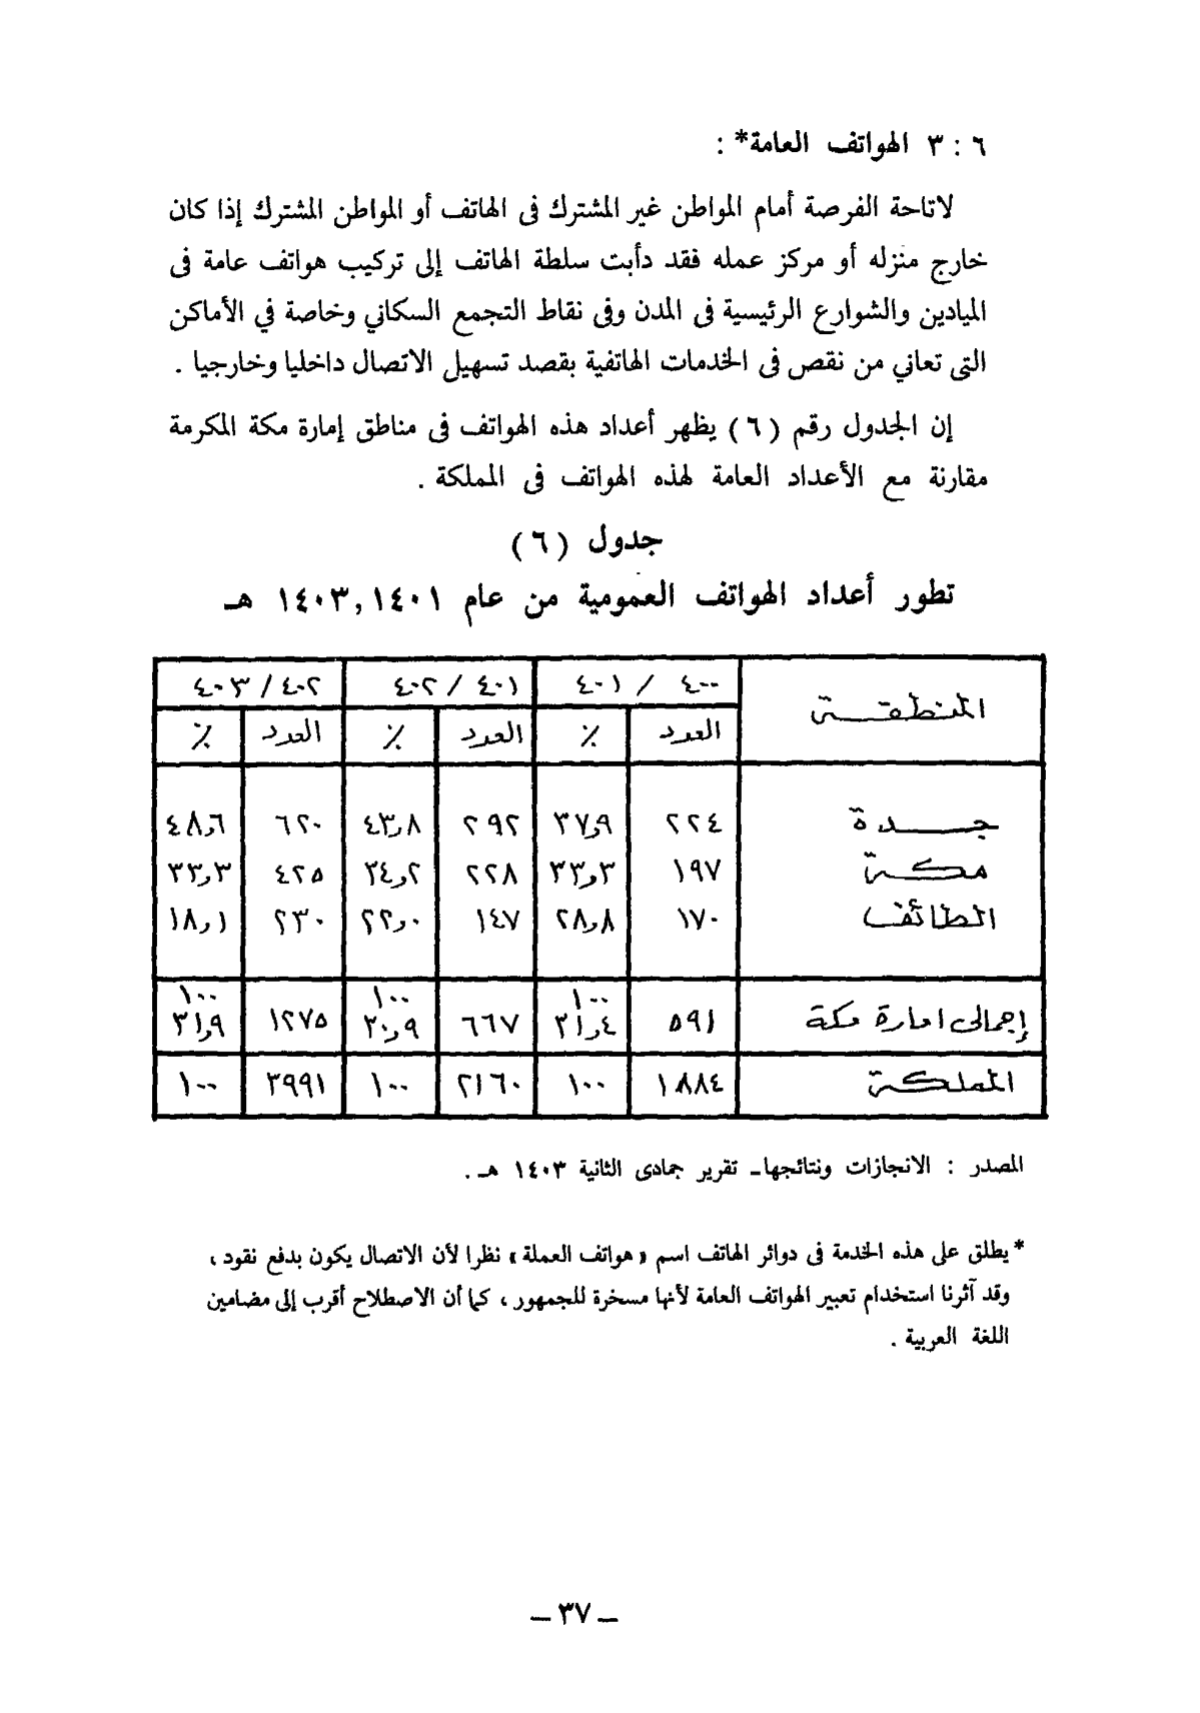 ٦ : ٣ الهواتف العامة* :
لاتاحة الفرصة أمام المواطن غير المشترك فى الهاتف أو المواطن المشترك إذا كان
خارج منزله أو مركز عمله فقد دأبت سلطة الهاتف إلى تركيب هواتف عامة فى
الميادين والشوارع الرئيسية فى المدن وفى نقاط التجمع السكاني وخاصة في الأماكن
التى تعاني من نقص فى الخدمات الهاتفية بقصد تسهيل الاتصال داخليا وخارجيا .
إن الجدول رقم (٦) يظهر أعداد هذه الهواتف فى مناطق إمارة مكة المكرمة
مقارنة مع الأعداد العامة لهذه الهواتف فى المملكة .
جدول (٦)
تطور أعداد الهواتف العمومية من عام ١٤٠٣,١٤٠١ هـ
المنطقة ٤٠٠ / ٤٠١ ٤٠١ / ٤٠٢ ٤٠٢ / ٤٠٣
العدد ٪ العدد ٪ العدد ٪
جدة ٢٢٤ ٣٧,٩ ٢٩٢ ٤٣,٨ ٦٢٠ ٤٨,٦
مكة ١٩٧ ٣٣,٣ ٢٢٨ ٣٤,٢ ٤٢٥ ٣٣,٣
الطائف ١٧٠ ٢٨,٨ ١٤٧ ٢٢,٠ ٢٣٠ ١٨,١
١٠٠ ١٠٠ ١٠٠
إجمالى امارة مكة ٥٩١ ٣١,٤ ٦٦٧ ٣٠,٩ ١٢٧٥ ٣١,٩
المملكة ١٨٨٤ ١٠٠ ٢١٦٠ ١٠٠ ٣٩٩١ ١٠٠
المصدر : الانجازات ونتائجها ـ تقرير جمادى الثانية ١٤٠٣ هـ .
* يطلق على هذه الخدمة فى دوائر الهاتف اسم «هواتف العملة» نظرا لأن الاتصال يكون بدفع نقود ،
وقد آثرنا استخدام تعبير الهواتف العامة لأنها مسخرة للجمهور ، كما أن الاصطلاح أقرب إلى مضامين
اللغة العربية .
ـ ٣٧ ـ